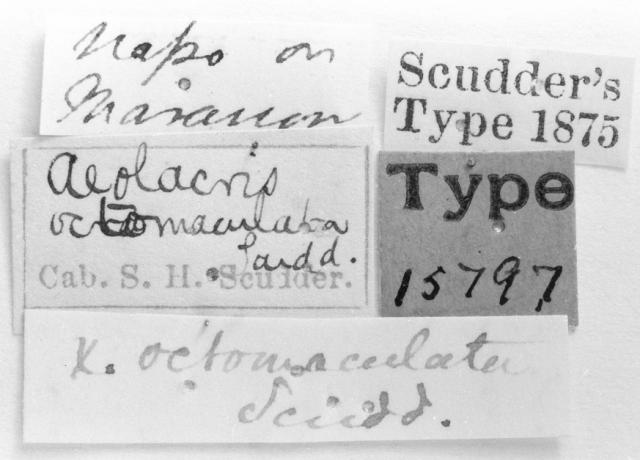 Napo or
Maranon
Scudder's
Type 1875
Aeolacris
octomaculata
Scudd.
Cab. S. H. Scudder.
Type
15797
X. octomaculata
Scudd.